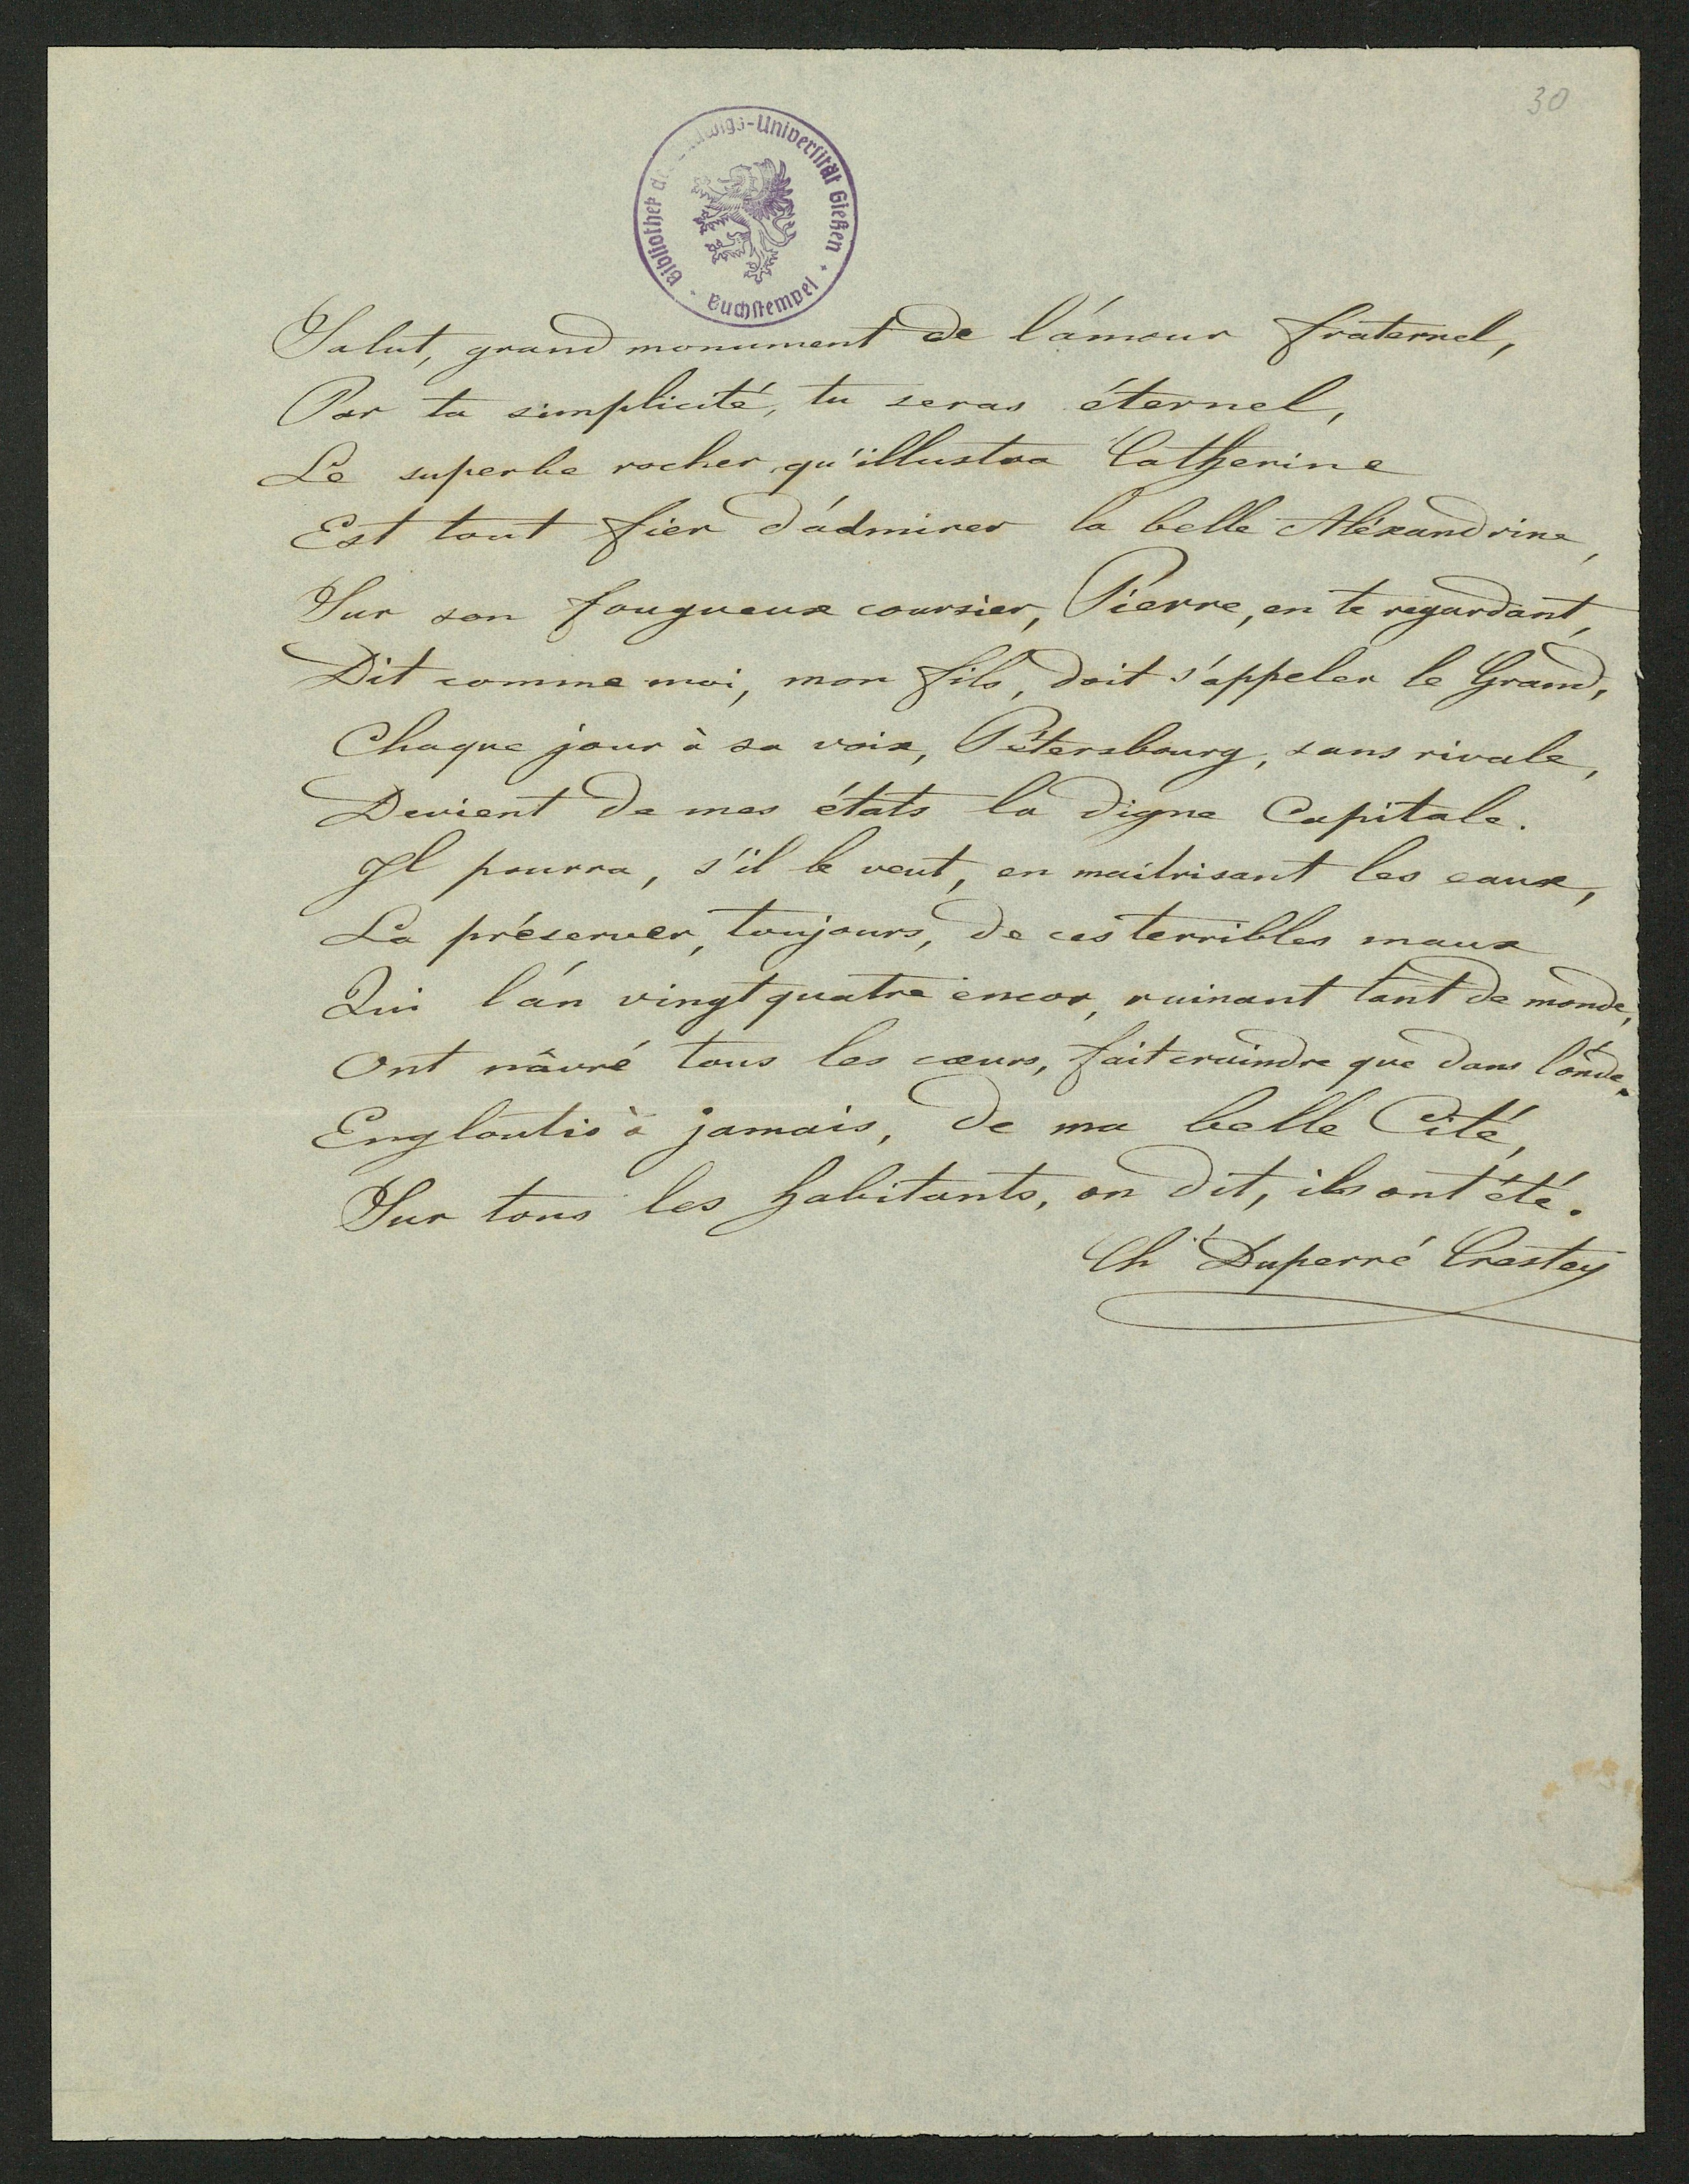 30
Bibliothek der Ludwigs-Universität Gießen
Buchstempel
Salut, grand monument de l'amour fraternel,
Par ta simplicité, tu seras éternel,
Le superbe rocher, qu'illustra Catherine
Est tout fier d'admirer la belle Aléxandrine,
Sur son fougueux coursier, Pierre, en te regardant,
Dit comme moi, mon fils, doit s'appeler le Grand,
Chaque jour à sa voix, Pétersbourg, sans rivale,
Devient de mes états la digne Capitale.
Il pourra, s'il le veut, en maitrisant les eaux,
La préserver, toujours, de ces terribles maux
Qui l'an vingt quatre encor, ruinant tant de monde,
Ont nâvré tous les cœurs, fait craindre que dans l'onde,
Engloutis à jamais, de ma belle Cité,
Sur tous les habitants, on dit, ils ont été.
Ch Duperré Crestey